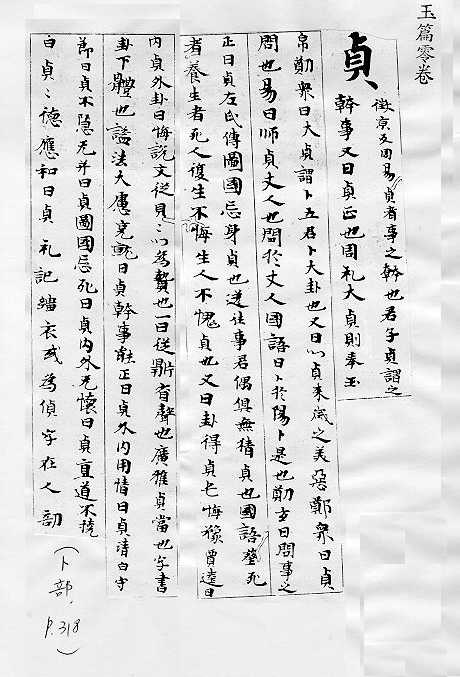 玉篇零卷
貞
徵京反周易貞者事之幹也君子貞謂之
幹事又曰貞正也周礼大貞則奉玉
帛鄭衆曰大貞謂卜立君卜大封也又曰以貞来歳之美惡鄭衆曰貞
問也易曰師貞丈人也問於丈人國語曰卜於陽卜是也鄭玄曰問事之
正曰貞左氏傳圖國忌身貞也送往事君偶俱無猜貞也國語葬死
者養生者死人復生不悔生人不愧貞也又曰卦得貞屯悔豫賈逵曰
内貞外卦曰悔說文從貝以為贄也一曰從鼎省聲也廣雅貞當也字書
卦下體也謚法大慮克就曰貞幹事能正曰貞外内用情曰貞清白守
節曰貞不隠无并曰貞圖國忌死曰貞内外无懷曰貞直道不撓
曰貞德應和曰貞礼記緇衣或為偵字在人部
(卜部. P.318)